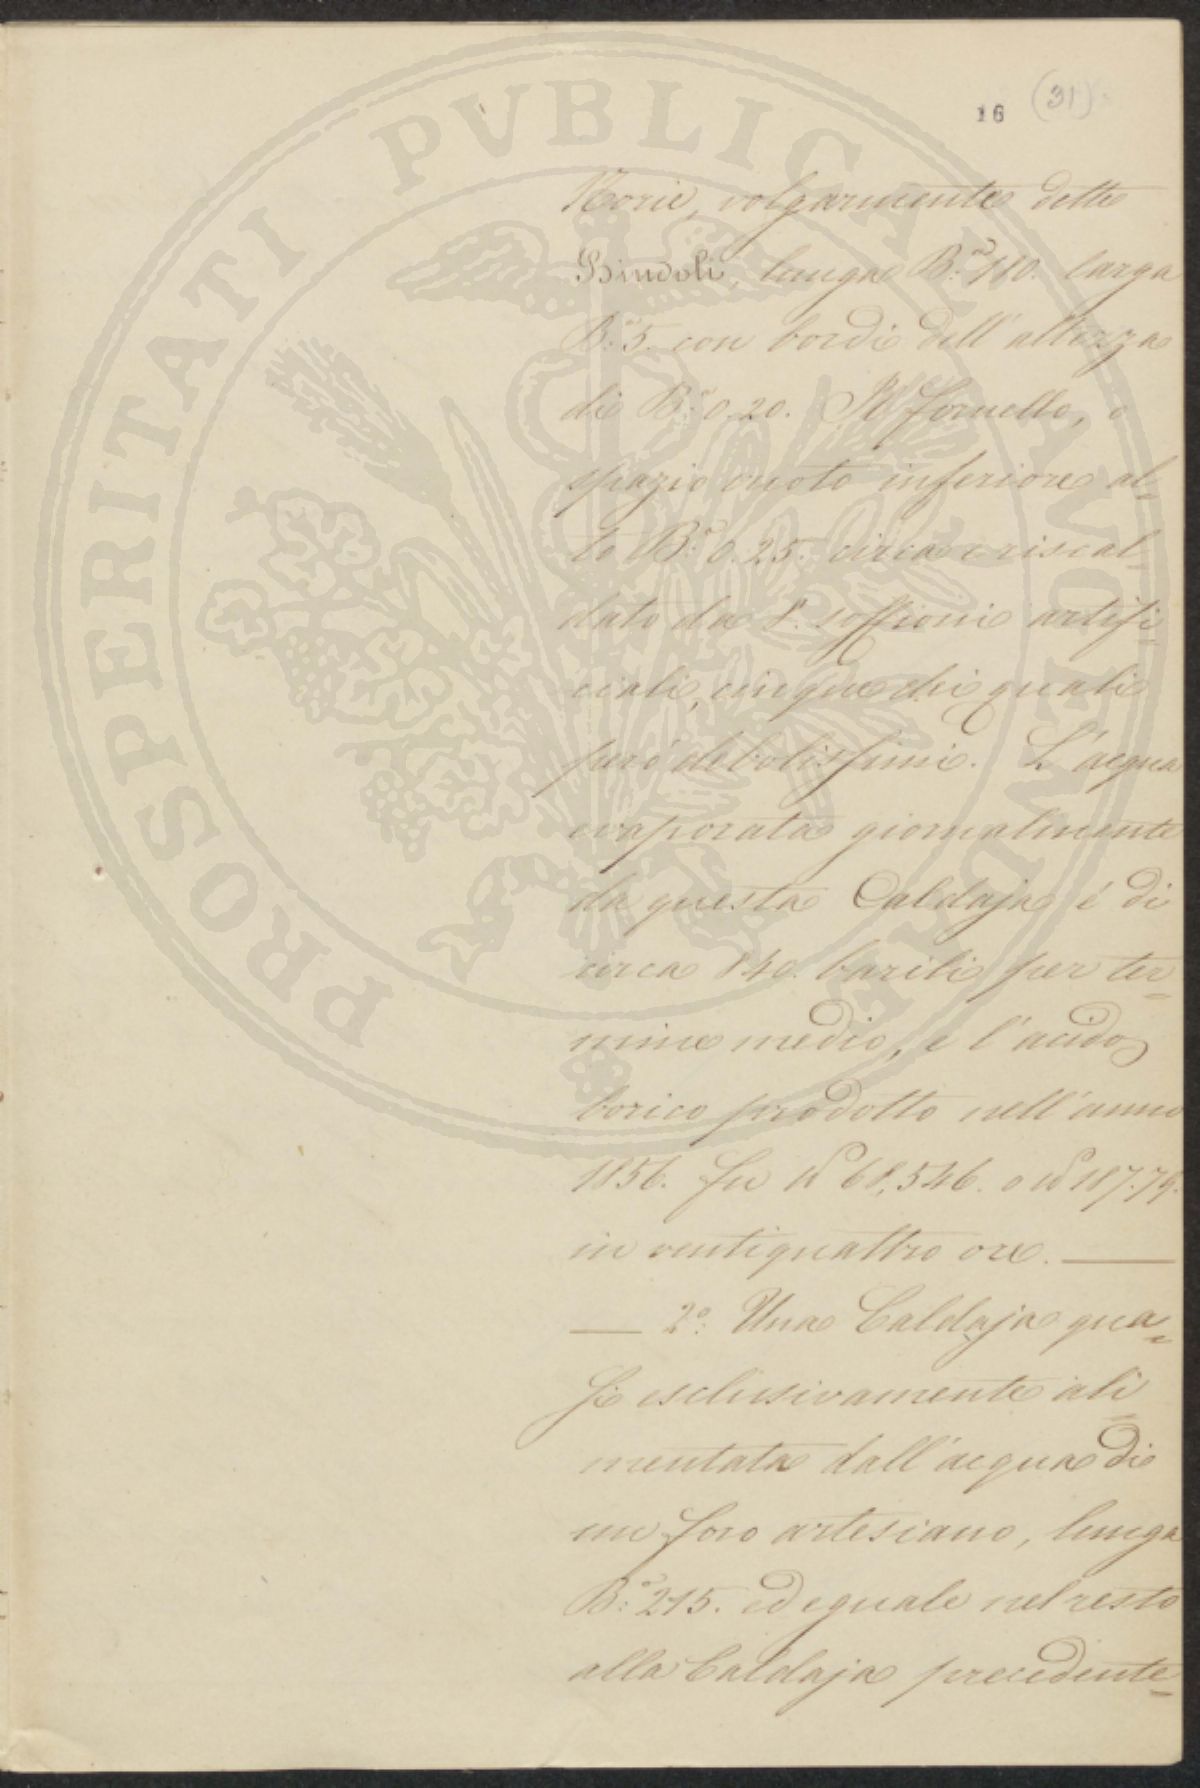 16 (31)
Norie, volgarmente dette
Bindoli, lunga B:ª 110. larga
B:ª 5. con bordi dell'altezza
di B:ª 0.20. Il fornello, o
spazio vuoto inferiore al=
to B:ª 0.25. circa è riscal=
dato da 8. soffioni artifi=
ciali, cinque dei quali
però debolissimi. L'acqua
evaporata giornalmente
da questa Caldaja é di
circa 140. barili per ter=
mine medio, e l'acido
borico prodotto nell'anno
1856. fu 68,546. o 187.79.
in ventiquattro ore. —
— 2°: Una Caldaja qua=
si esclusivamente ali=
mentata dall'acqua di
un foro artesiano, lunga
B:ª 215. ed eguale nel resto
alla Caldaja precedente=
PROSPERITATI PVBLICAE AVGENDAE